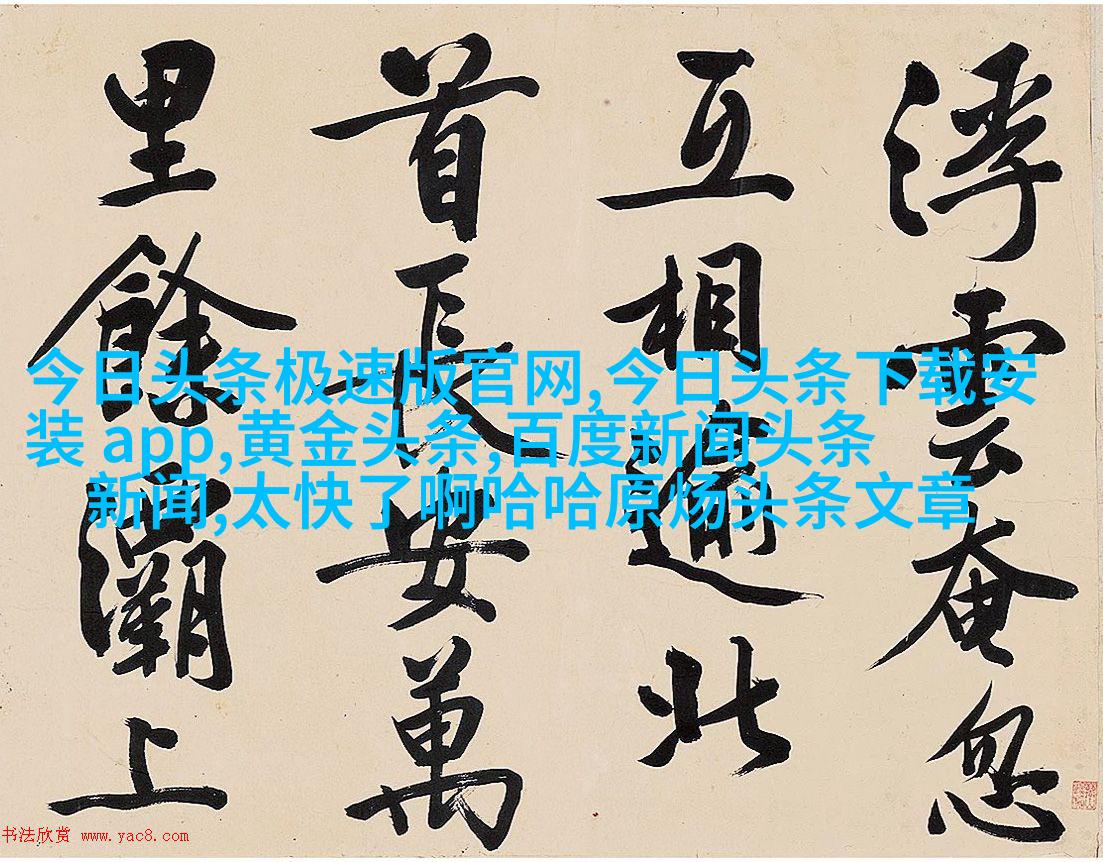 浮雲奄忽
互相逾北
首長安萬
里餘灞上
今日头条极速版官网,今日头条下载安
装 app,黄金头条,百度新闻头条
新闻,太快了啊哈哈原炀头条文章
书法欣赏 www.yac8.com